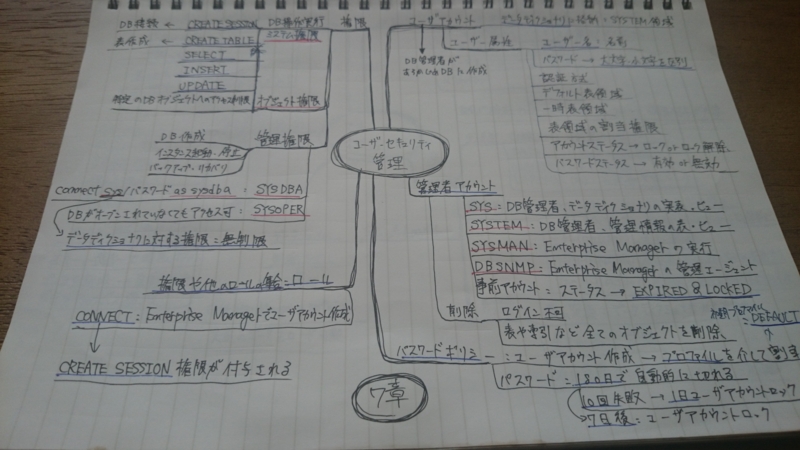 ユーザ・セキュリティ
管理
7章
DB接続 ← CREATE SESSION
表作成 ← CREATE TABLE
SELECT
INSERT
UPDATE
DB操作実行
システム権限
権限
特定のDBオブジェクトへのアクセス制限
オブジェクト権限
DB作成
インスタンス起動・停止
バックアップ・リカバリ
管理権限
connect sys/パスワード as sysdba : SYSDBA
DBがオープンされていなくてもアクセス可 : SYSOPER
データディクショナリに対する権限:無制限
権限や他のロールの集合:ロール
CONNECT:Enterprise Managerでユーザアカウント作成
CREATE SESSION 権限が付与される
ユーザアカウント
データディクショナリに格納・SYSTEM領域
DB管理者が
DBに作成
ユーザー属性
ユーザー名:名前
パスワード → 大文字、小文字を区別
認証方式
デフォルト表領域
一時表領域
表領域の割当権限
アカウントステータス → ロック or ロック解除
パスワードステータス → 有効 or 無効
管理者アカウント
SYS:DB管理者、データディクショナリの実表・ビュー
SYSTEM:DB管理者、管理情報の表・ビュー
SYSMAN:Enterprise Managerの実行
DBSNMP:Enterprise Managerの管理エージェント
事前アカウント:ステータス → EXPIRED & LOCKED
削除
ログイン不可
表や索引など全てのオブジェクトを削除
パスワードポリシー:ユーザアカウント作成 → プロファイルを介して割当
:DEFAULT
パスワード:180日で自動的に切れる
10回失敗 → 1日ユーザアカウントロック
7日後:ユーザアカウントロック